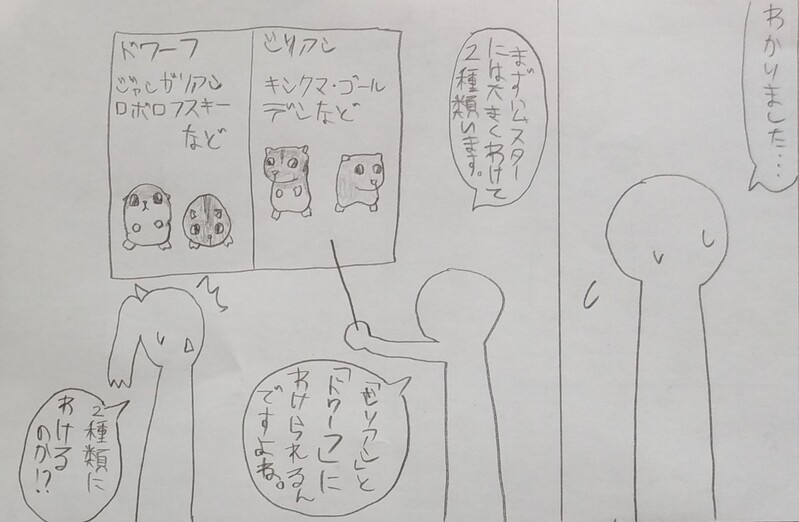 わかりました…
まずハムスター
には大きくわけて
2種類います。
ドワーフ
ジャンガリアン
ロボロフスキー
など
シリアン
キンクマ・ゴール
デンなど
「シリアン」と
「ドワーフ」に
わけられるん
ですよね。
2種類に
わける
のか!?